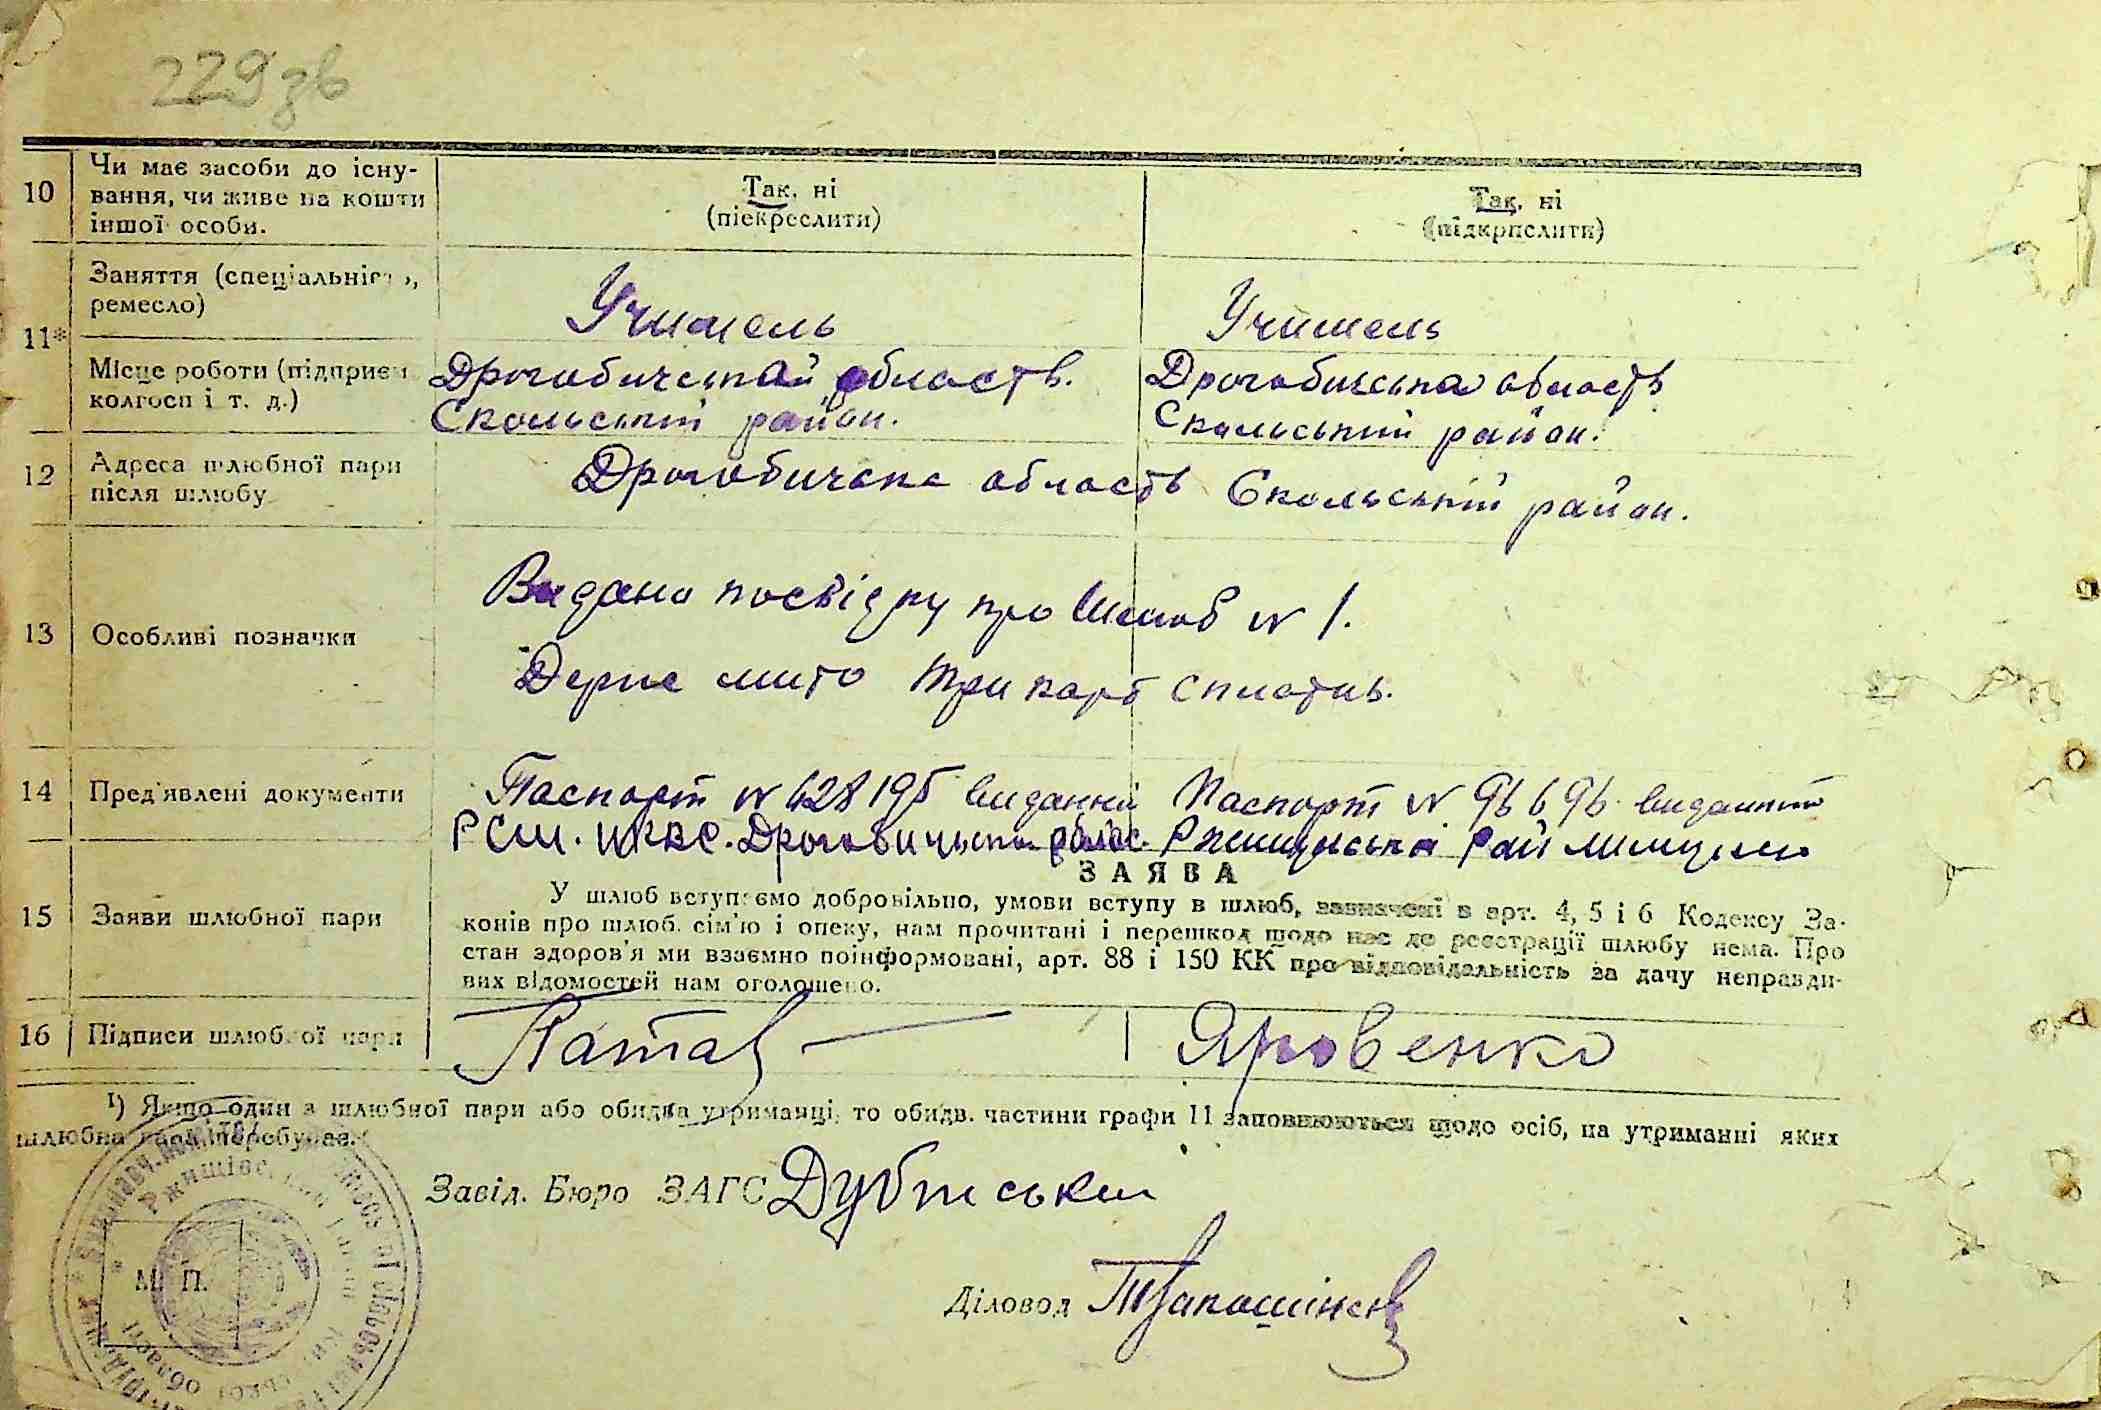 229 зв
10 Чи має засоби до існу-
вання, чи живе на кошти
іншої особи.
Так, ні
(піекреслити)
Так, ні
(підкрпслити)
11*
Заняття (спеціальніст ,
ремесло)
Учитель
Учитель
Місце роботи (підприєм
колгосп і т. д.)
Дрогобичський область.
Скольській район.
Дрогобичська область
Скольський район.
12 Адреса шлюбної пари
після шлюбу
Дрогобичська область Скольській район.
13 Особливі позначки
Видано посвідку про шлюб № 1.
Держ мито три карб сплатив.
14 Пред'явлені документи
Паспорт № 428195 виданий
РСМ. НКВС. Дрогобичською облас.
Паспорт № 96696 виданий
Ржищівська Рай міліцією
15 Заяви шлюбної пари
ЗАЯВА
У шлюб вступаємо добровільно, умови вступу в шлюб, зазначені в арт. 4, 5 і 6 Кодексу За-
конів про шлюб. сім'ю і опеку, нам прочитані і перешкод щодо нас до реєстрації шлюбу нема. Про
стан здоров'я ми взаємно поінформовані, арт. 88 і 150 КК про відповідальність за дачу неправди-
вих відомостей нам оголошено.
16 Підписи шлюбної пари
Яровенко
¹) Якщо один з шлюбної пари або обидва утриманці, то обидв. частини графи 11 заповнюються щодо осіб, на утриманні яких
шлюбна пара перебуває.
Завід. Бюро ЗАГС Дубінський
Діловод
М. П.